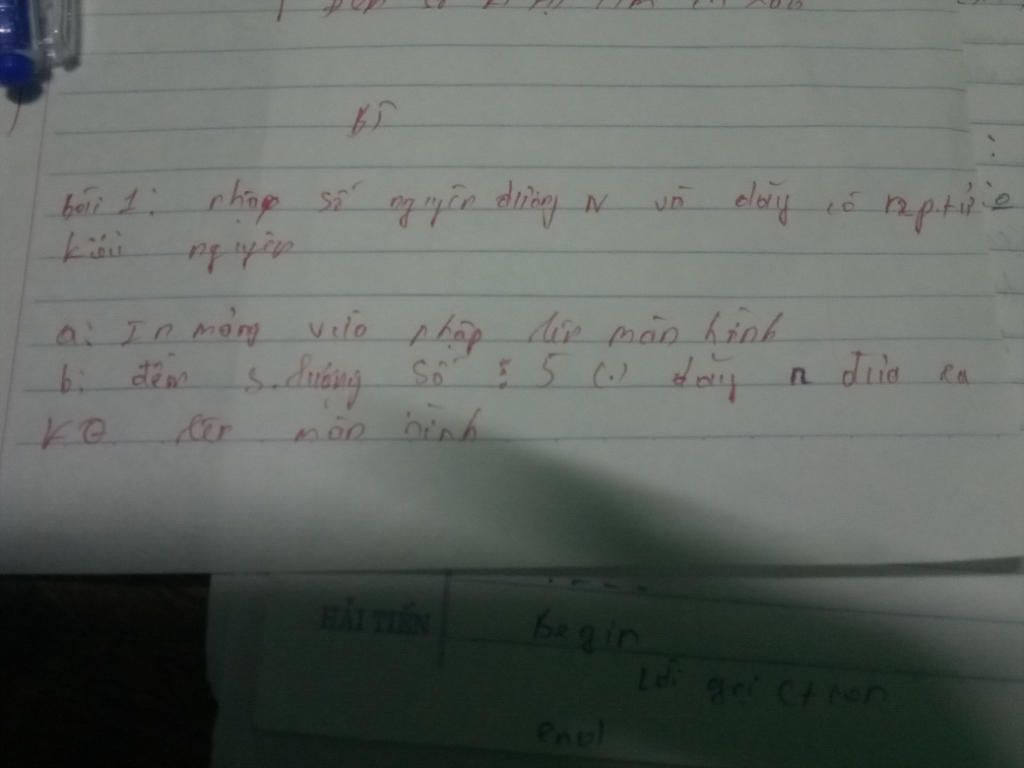 BT
bài 1: nhập số nguyên dương N và dãy có n p.tử
kiểu nguyên
a: In mảng vừa nhập lên màn hình
b: đếm s.lượng số ⋮ 5 (.) dãy n đưa ra
KQ lên màn hình
HẢI TIẾN
Begin
Lời gọi ctcon
end